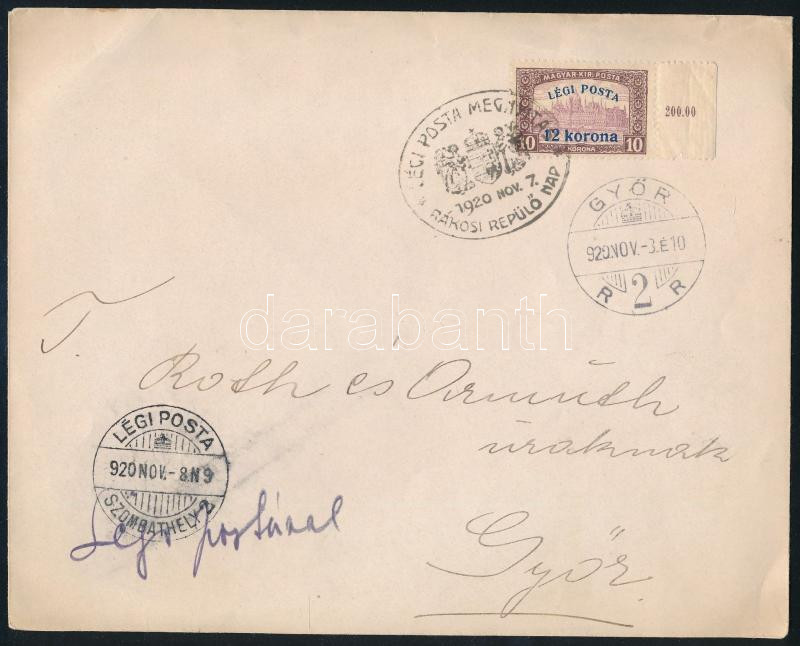 MAGYAR·KIR·POSTA
LÉGI POSTA
12 korona
10 KORONA 10
200.00
LÉGI POSTA MEGNYITÁSA
1920 NOV. 7.
RÁKOSI REPÜLŐ NAP
GYŐR
920.NOV.-3.É10
R 2 R
darabanth
T.
Roth és Ormúth
uraknak
LÉGI POSTA
920 NOV.-8.N9
SZOMBATHELY 2
Légi postával
Győr.